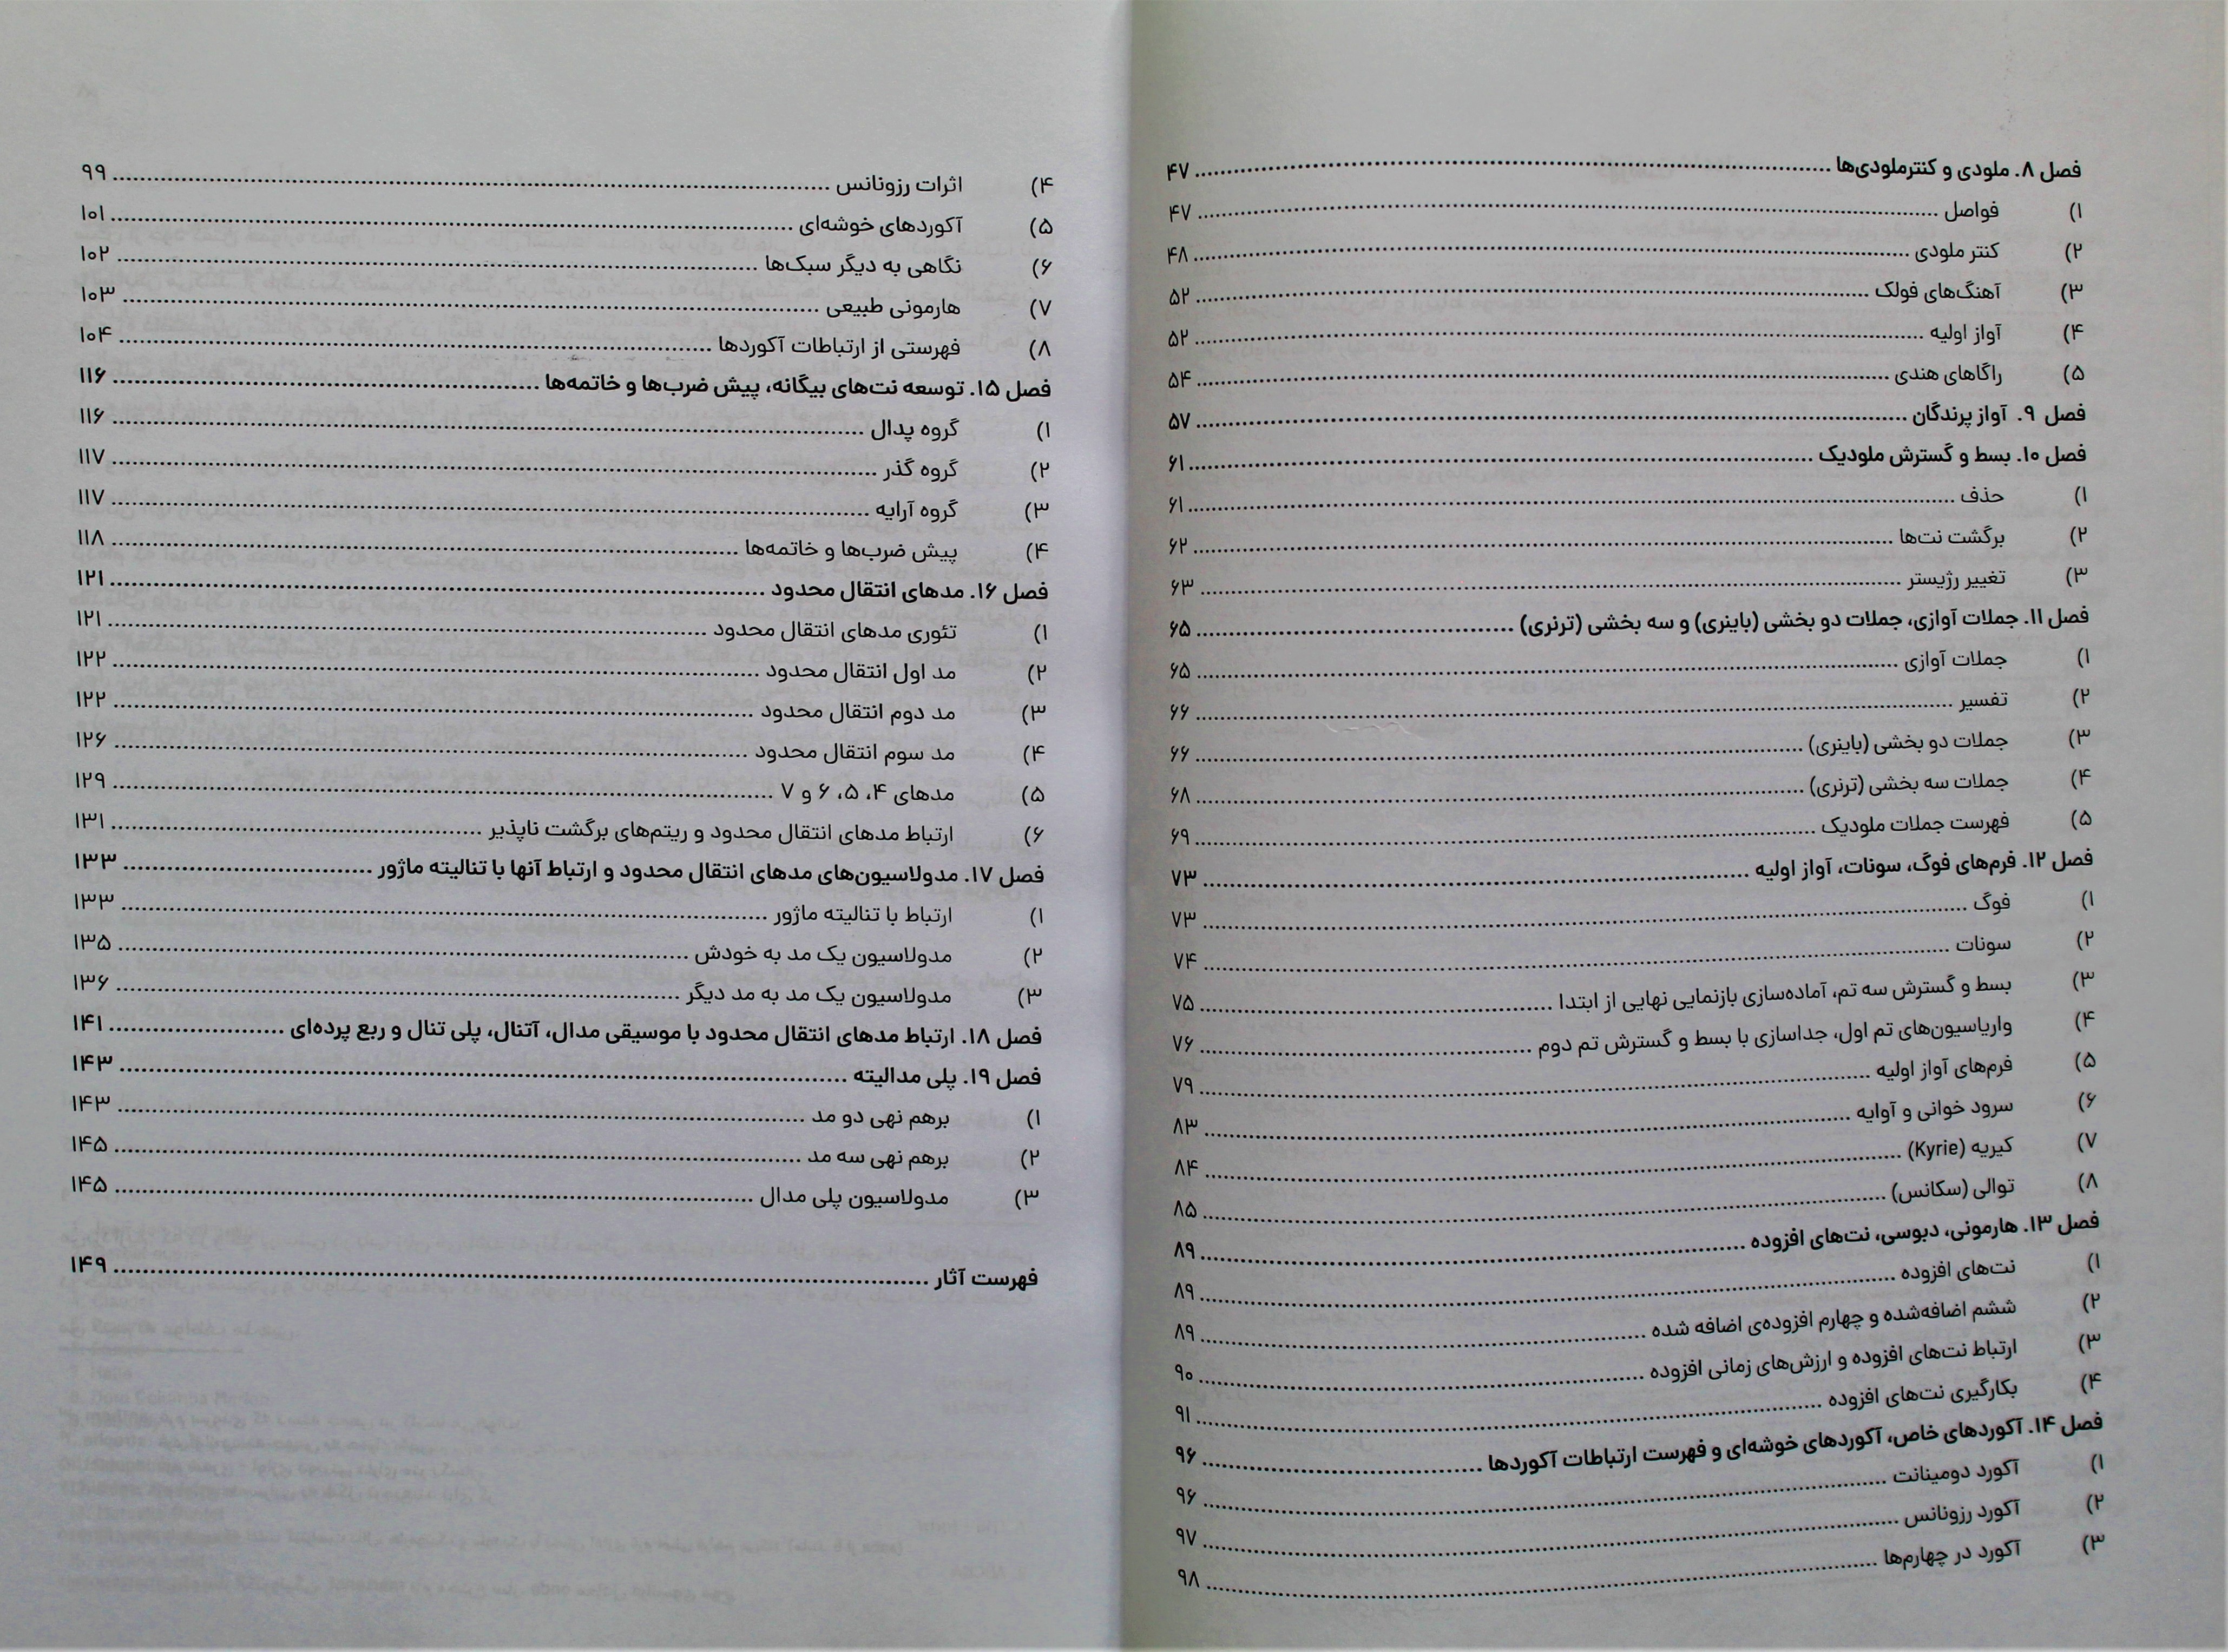 فصل ۸. ملودی و کنترملودی‌ها ........ ۴۷
۱) فواصل ........ ۴۷
۲) کنتر ملودی ........ ۴۸
۳) آهنگ‌های فولک ........ ۵۲
۴) آواز اولیه ........ ۵۲
۵) راگاهای هندی ........ ۵۴
فصل ۹. آواز پرندگان ........ ۵۷
فصل ۱۰. بسط و گسترش ملودیک ........ ۶۱
۱) حذف ........ ۶۱
۲) برگشت نت‌ها ........ ۶۲
۳) تغییر رژیستر ........ ۶۳
فصل ۱۱. جملات آوازی، جملات دو بخشی (باینری) و سه بخشی (ترنری) ........ ۶۵
۱) جملات آوازی ........ ۶۵
۲) تفسیر ........ ۶۶
۳) جملات دو بخشی (باینری) ........ ۶۶
۴) جملات سه بخشی (ترنری) ........ ۶۸
۵) فهرست جملات ملودیک ........ ۶۹
فصل ۱۲. فرم‌های فوگ، سونات، آواز اولیه ........ ۷۳
۱) فوگ ........ ۷۳
۲) سونات ........ ۷۴
۳) بسط و گسترش سه تم، آماده‌سازی بازنمایی نهایی از ابتدا ........ ۷۵
۴) واریاسیون‌های تم اول، جداسازی با بسط و گسترش تم دوم ........ ۷۶
۵) فرم‌های آواز اولیه ........ ۷۹
۶) سرود خوانی و آوایه ........ ۸۳
۷) کیریه (Kyrie) ........ ۸۴
۸) توالی (سکانس) ........ ۸۵
فصل ۱۳. هارمونی، دبوسی، نت‌های افزوده ........ ۸۹
۱) نت‌های افزوده ........ ۸۹
۲) ششم اضافه‌شده و چهارم افزوده‌ی اضافه شده ........ ۸۹
۳) ارتباط نت‌های افزوده و ارزش‌های زمانی افزوده ........ ۹۰
۴) بکارگیری نت‌های افزوده ........ ۹۱
فصل ۱۴. آکوردهای خاص، آکوردهای خوشه‌ای و فهرست ارتباطات آکوردها ........ ۹۶
۱) آکورد دومینانت ........ ۹۶
۲) آکورد رزونانس ........ ۹۷
۳) آکورد در چهارم‌ها ........ ۹۸
۴) اثرات رزونانس ........ ۹۹
۵) آکوردهای خوشه‌ای ........ ۱۰۱
۶) نگاهی به دیگر سبک‌ها ........ ۱۰۲
۷) هارمونی طبیعی ........ ۱۰۳
۸) فهرستی از ارتباطات آکوردها ........ ۱۰۴
فصل ۱۵. توسعه نت‌های بیگانه، پیش ضرب‌ها و خاتمه‌ها ........ ۱۱۶
۱) گروه پدال ........ ۱۱۶
۲) گروه گذر ........ ۱۱۷
۳) گروه آرایه ........ ۱۱۷
۴) پیش ضرب‌ها و خاتمه‌ها ........ ۱۱۸
فصل ۱۶. مدهای انتقال محدود ........ ۱۲۱
۱) تئوری مدهای انتقال محدود ........ ۱۲۱
۲) مد اول انتقال محدود ........ ۱۲۲
۳) مد دوم انتقال محدود ........ ۱۲۲
۴) مد سوم انتقال محدود ........ ۱۲۶
۵) مدهای ۴، ۵، ۶ و ۷ ........ ۱۲۹
۶) ارتباط مدهای انتقال محدود و ریتم‌های برگشت ناپذیر ........ ۱۳۱
فصل ۱۷. مدولاسیون‌های مدهای انتقال محدود و ارتباط آنها با تنالیته ماژور ........ ۱۳۳
۱) ارتباط با تنالیته ماژور ........ ۱۳۳
۲) مدولاسیون یک مد به خودش ........ ۱۳۵
۳) مدولاسیون یک مد به مد دیگر ........ ۱۳۶
فصل ۱۸. ارتباط مدهای انتقال محدود با موسیقی مدال، آتنال، پلی تنال و ربع پرده‌ای ........ ۱۴۱
فصل ۱۹. پلی مدالیته ........ ۱۴۳
۱) برهم نهی دو مد ........ ۱۴۳
۲) برهم نهی سه مد ........ ۱۴۵
۳) مدولاسیون پلی مدال ........ ۱۴۵
فهرست آثار ........ ۱۴۹